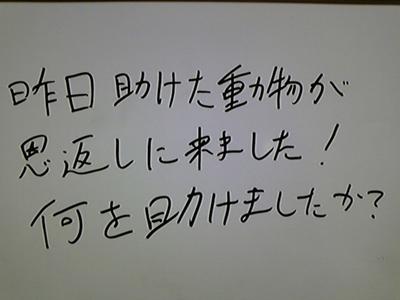 昨日助けた動物が
恩返しに来ました！
何を助けましたか?